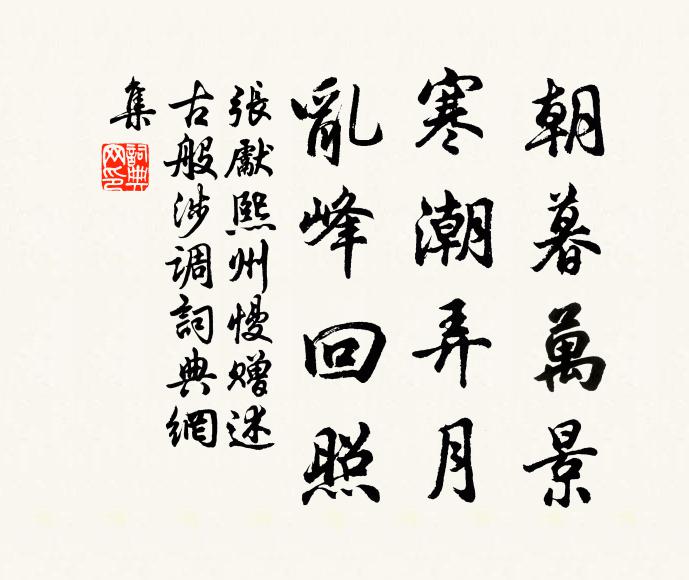 朝暮萬景
寒潮弄月
亂峰回照
張獻熙州慢赠述
古般涉调詞典網
集
詞典
网印